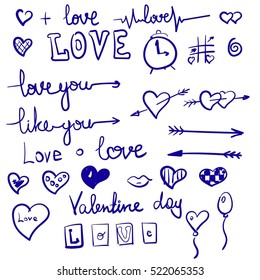 + love love
LOVE
love you
like you
Love love
Love
Valentine day
L O V E
shutterstock.com · 522065353